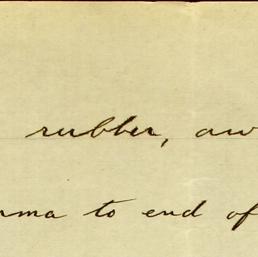 rubber, aw
rma to end of